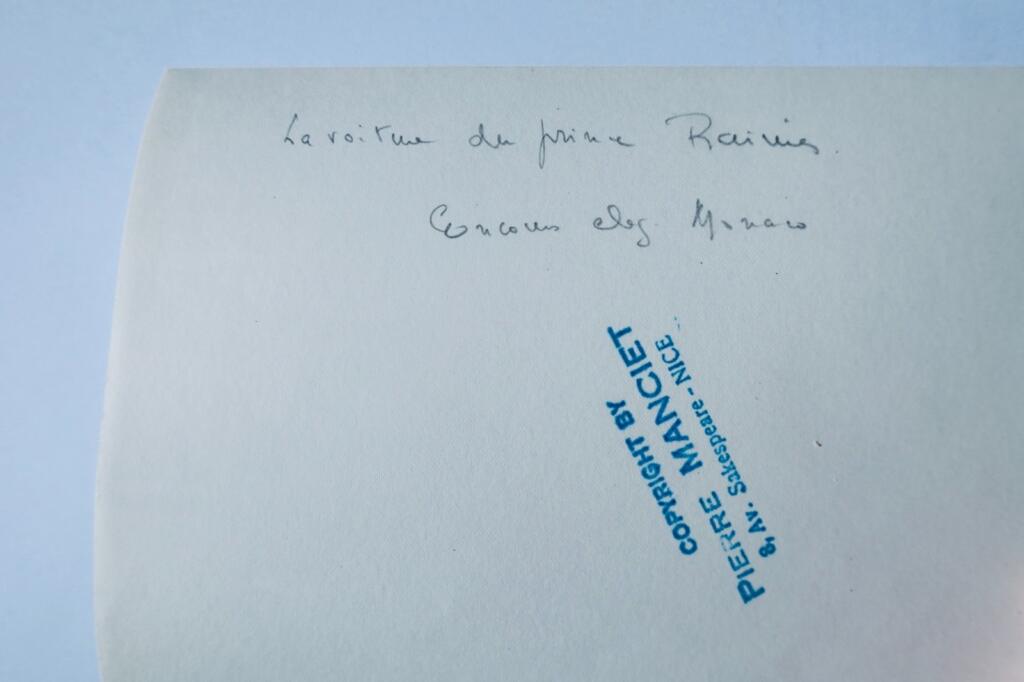 La voiture du prince Rainier.
Concours eleg. Monaco
COPYRIGHT BY
PIERRE MANCIET
8, AV. Sakespeare - NICE